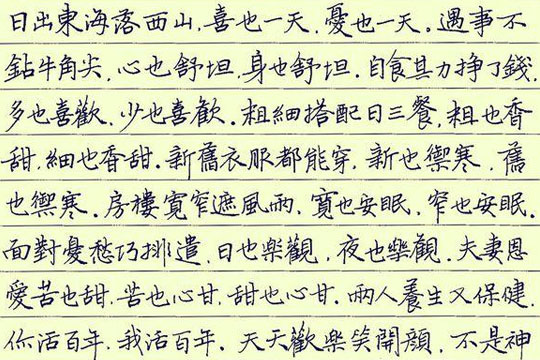 日出東海落西山，喜也一天，憂也一天。遇事不
鉆牛角尖，心也舒坦，身也舒坦。自食其力掙了錢，
多也喜歡，少也喜歡。粗細搭配日三餐，粗也香
甜，細也香甜。新舊衣服都能穿，新也禦寒，舊
也禦寒。房樓寬窄遮風雨，寬也安眠，窄也安眠。
面對憂愁巧排遣，日也樂觀，夜也樂觀。夫妻恩
愛苦也甜，苦也心甘，甜也心甘。兩人養生又保健，
你活百年，我活百年。天天歡樂笑開顏，不是神